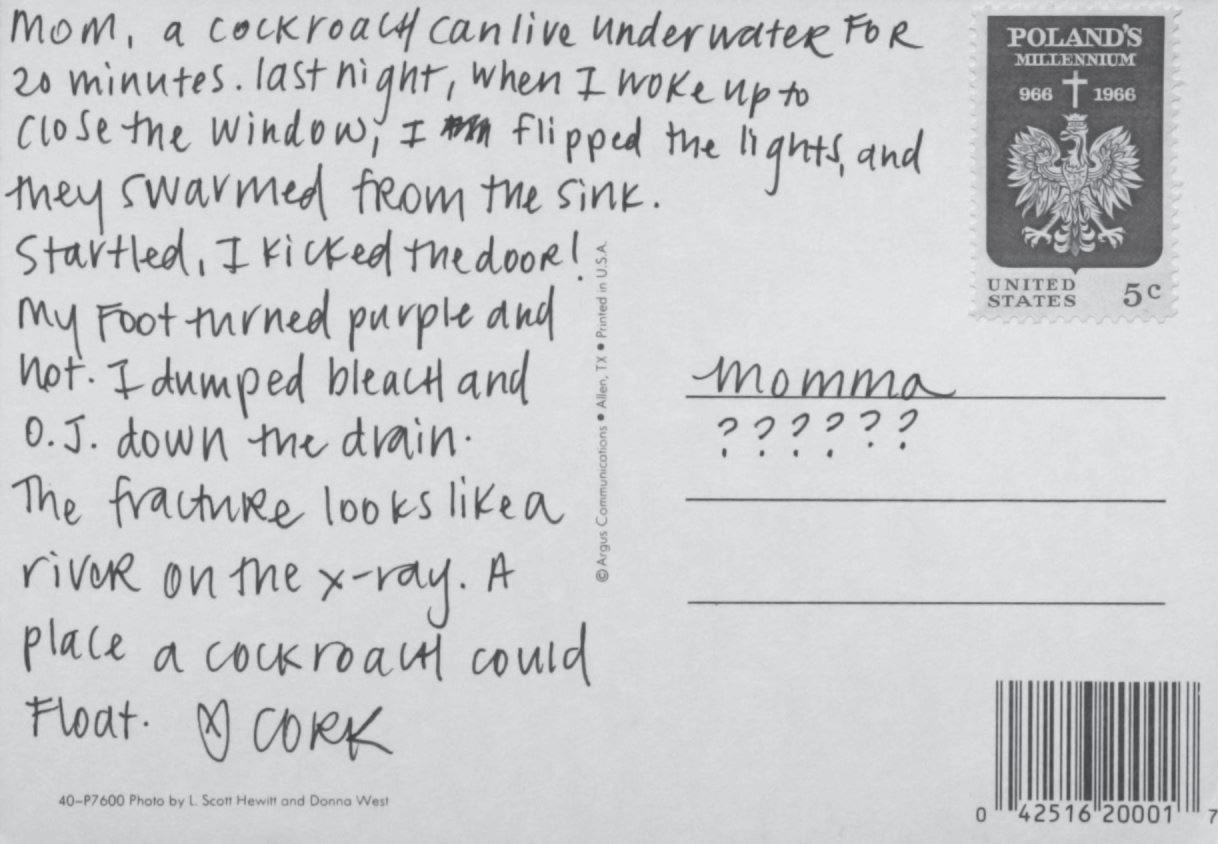 Mom, a cockroach can live underwater for
20 minutes. last night, when I woke up to
close the window, I flipped the lights, and
they swarmed from the sink.
Startled, I kicked the door!
My foot turned purple and
hot. I dumped bleach and
O.J. down the drain.
The fracture looks like a
river on the x-ray. A
place a cockroach could
float. CORK
40-P7600 Photo by L. Scott Hewitt and Donna West
© Argus Communications • Allen, TX • Printed in U.S.A.
POLAND'S
MILLENNIUM
966 1966
UNITED
STATES 5c
Momma
??????
0 42516 20001 7